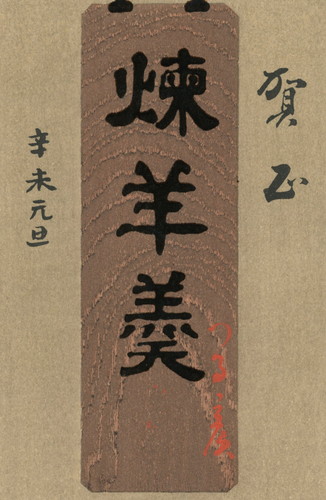 賀正
煉羊羹
辛未元旦